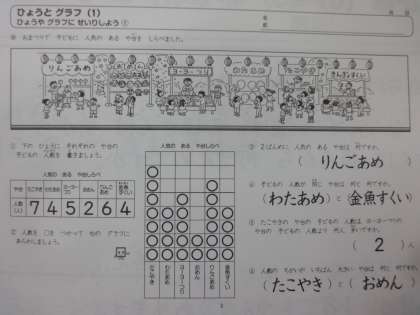 ひょうと グラフ (1)
ひょうや グラフに せいりしよう①
月 日
名
名
◎ おまつりで 子どもに 人気の ある や台を しらべました。
りんごあめ
ヨーヨーつり
わたあめ
たこやき
きんぎょすくい
① 下の ひょうに それぞれの や台の
子どもの 人数を 書きましょう。
人気の ある や台しらべ
や台 たこやき わたあめ ヨーヨーつり おめん りんごあめ 金魚すくい
人数(人) 7 4 5 2 6 4
② 人数を ○を つかって 右の グラフに
あらわしましょう。
人気の ある や台しらべ
たこやき わたあめ ヨーヨーつり おめん りんごあめ 金魚すくい
③ 2ばんめに 人気の ある や台は 何ですか。
( りんごあめ )
④ 子どもの 人数が 同じ や台は 何と 何ですか。
(わたあめ)と(金魚すくい)
⑤ たこやきの や台の 子どもの 人数は ヨーヨーつりの
や台の 子どもの 人数より 何人 多いですか。
( 2 )人
⑥ 人数の ちがいが いちばん 大きい や台は 何と 何ですか。
(たこやき)と(おめん)